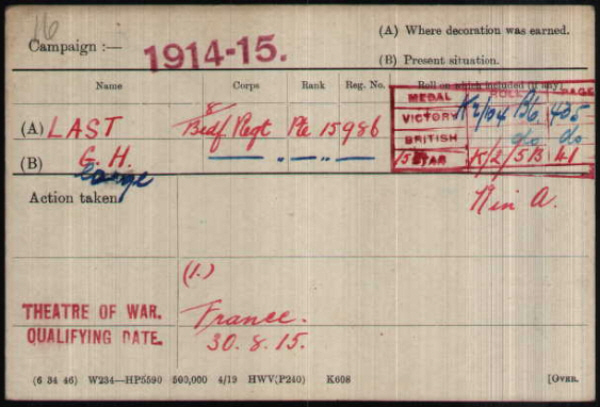 16
Campaign :— 1914-15.
(A) Where decoration was earned.
(B) Present situation.
Name Corps Rank Reg. No. Roll on which included (if any)
MEDAL ROLL PAGE
(A) LAST 8/Bedf. Regt Pte 15986
VICTORY K2/104 B6 405
BRITISH do do
(B) G. H. — " — " —
15 STAR K/2/5B 41
George
Action taken
(1.)
THEATRE OF WAR. France.
QUALIFYING DATE. 30. 8. 15.
(6 34 46) W234—HP5590 500,000 4/19 HWV(P240) K608 [OVER.